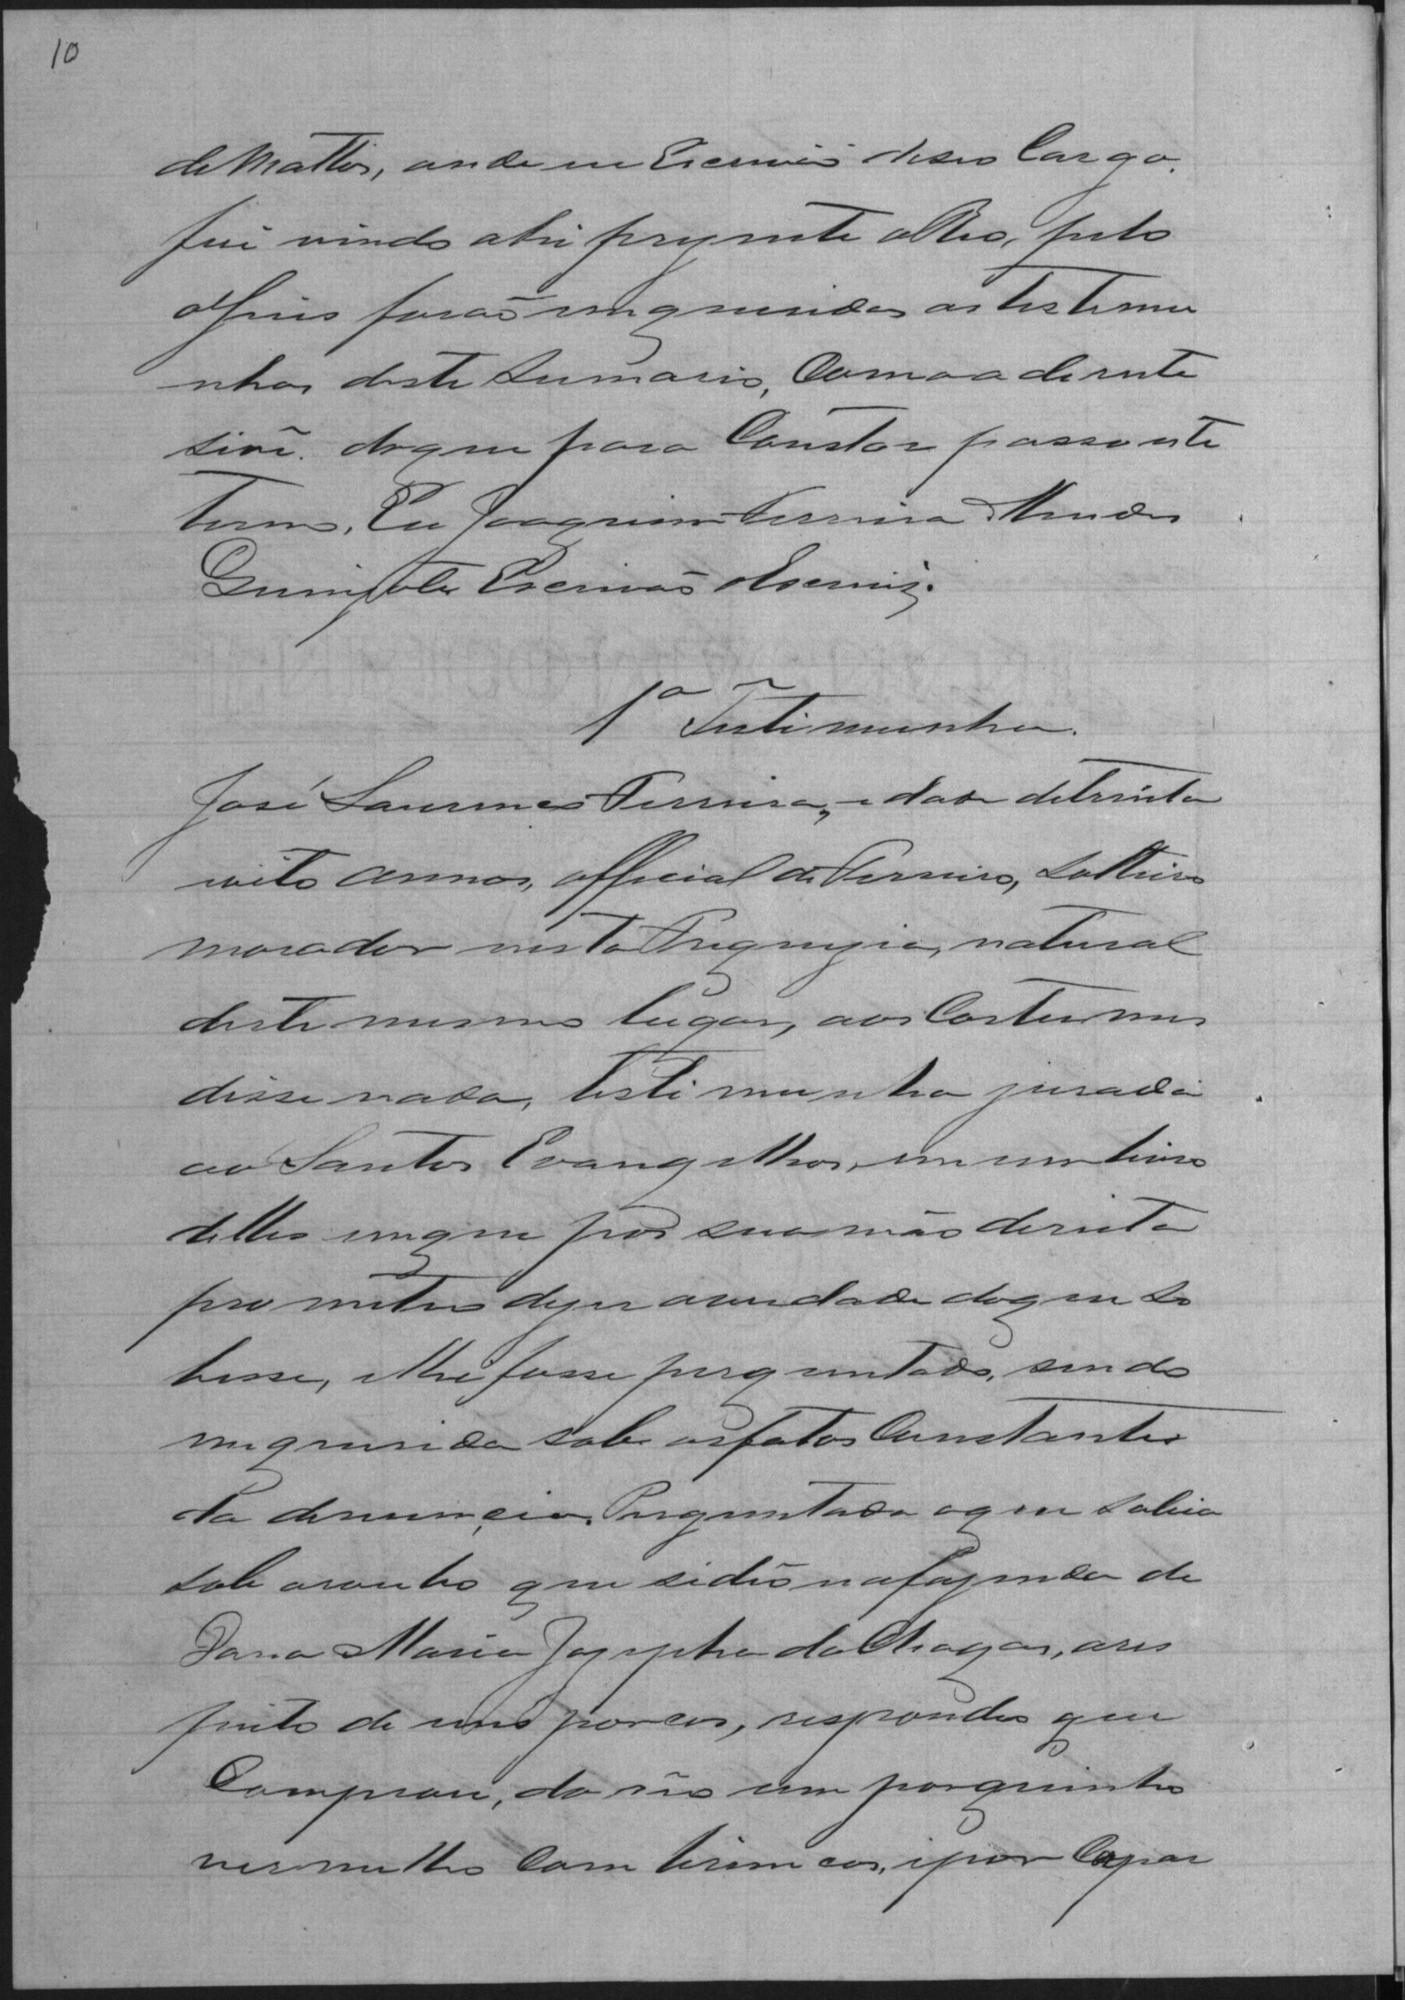 10
de Mattos, onde eu Escrivão deseo Cargo.
fui vindo ahi prezente o Reo, pelo
o Juis forão inqueridas as testemu
nhas deste Sumario, Como adiente
se vê. do que para Constar passo este
termo, Eu Joaquim Ferreira Mendes
Escrivão o Escrevi.
1ª Testimunha.
José Lourenço Ferreira, idade de trinta
oito annos, official de Ferreiro, Solteiro
morador nesta Freguezia, natural
deste mesmo lugar, aos Costumes
disse nada, testimunha jurada
ao Santos Evangelhos, em um livro
delles em que pos sua mão dereita
prometeo dizer averdade do que so
besse, e lhe fosse perguntado, sendo
inquerida sobre os fatos Constantes
da denuncia. Perguntada o que sabia
sobre oroubo que se deo na fazenda de
Dona Maria Jozepha da Chagas, ares
peito de uns porcos, respondeo que
Comprou, do reo um porquinho
vermelho Com brincos, e por Capar